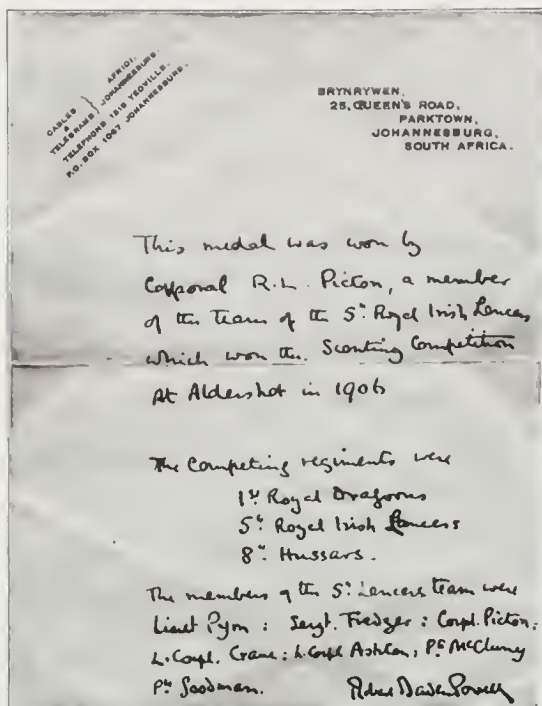 CABLES & TELEGRAMS } AFRIDI, JOHANNESBURG.
TELEPHONE 1315 YEOVILLE.
P.O. BOX 1067 JOHANNESBURG.
BRYNRYWEN,
25, QUEEN'S ROAD,
PARKTOWN,
JOHANNESBURG,
SOUTH AFRICA.
This medal was won by
Corporal R.L. Picton, a member
of the Team of the 5th Royal Irish Lancers
which won the Scouting Competition
At Aldershot in 1906
The Competing regiments were
1st Royal Dragoons
5th Royal Irish Lancers
8th Hussars.
The members of the 5th Lancers team were
Lieut Pym : Sergt. Fredger : Corpl. Picton :
L. Corpl. Crane : L. Corpl Ashton, Pte McClumy
Pte Goodman. Robert Baden Powell